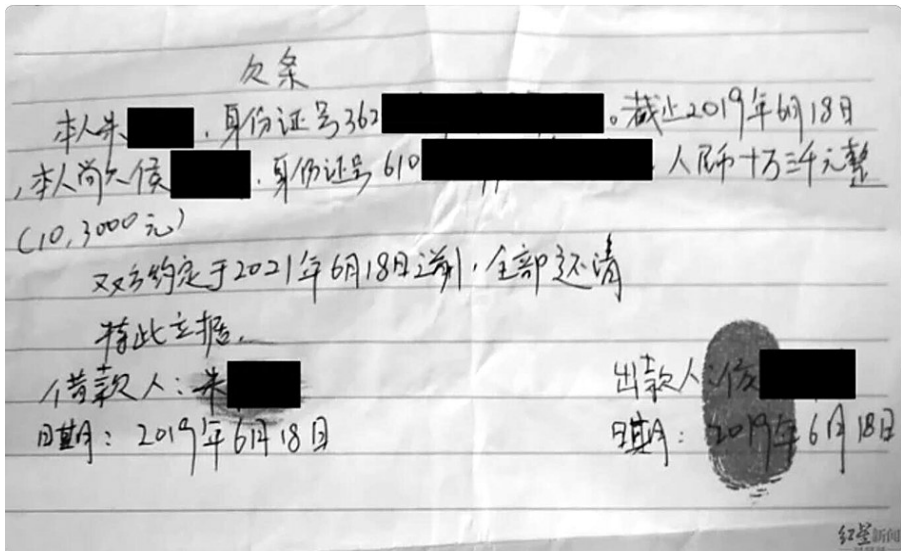 欠条
本人朱，身份证号362。截止2019年6月18日
，本人尚欠侯，身份证号610，人民币十万三千元整
(10,3000元)
双方约定于2021年6月18日之前，全部还清
特此立据。
借款人：朱 出款人：侯
日期：2019年6月18日 日期：2019年6月18日
红星新闻